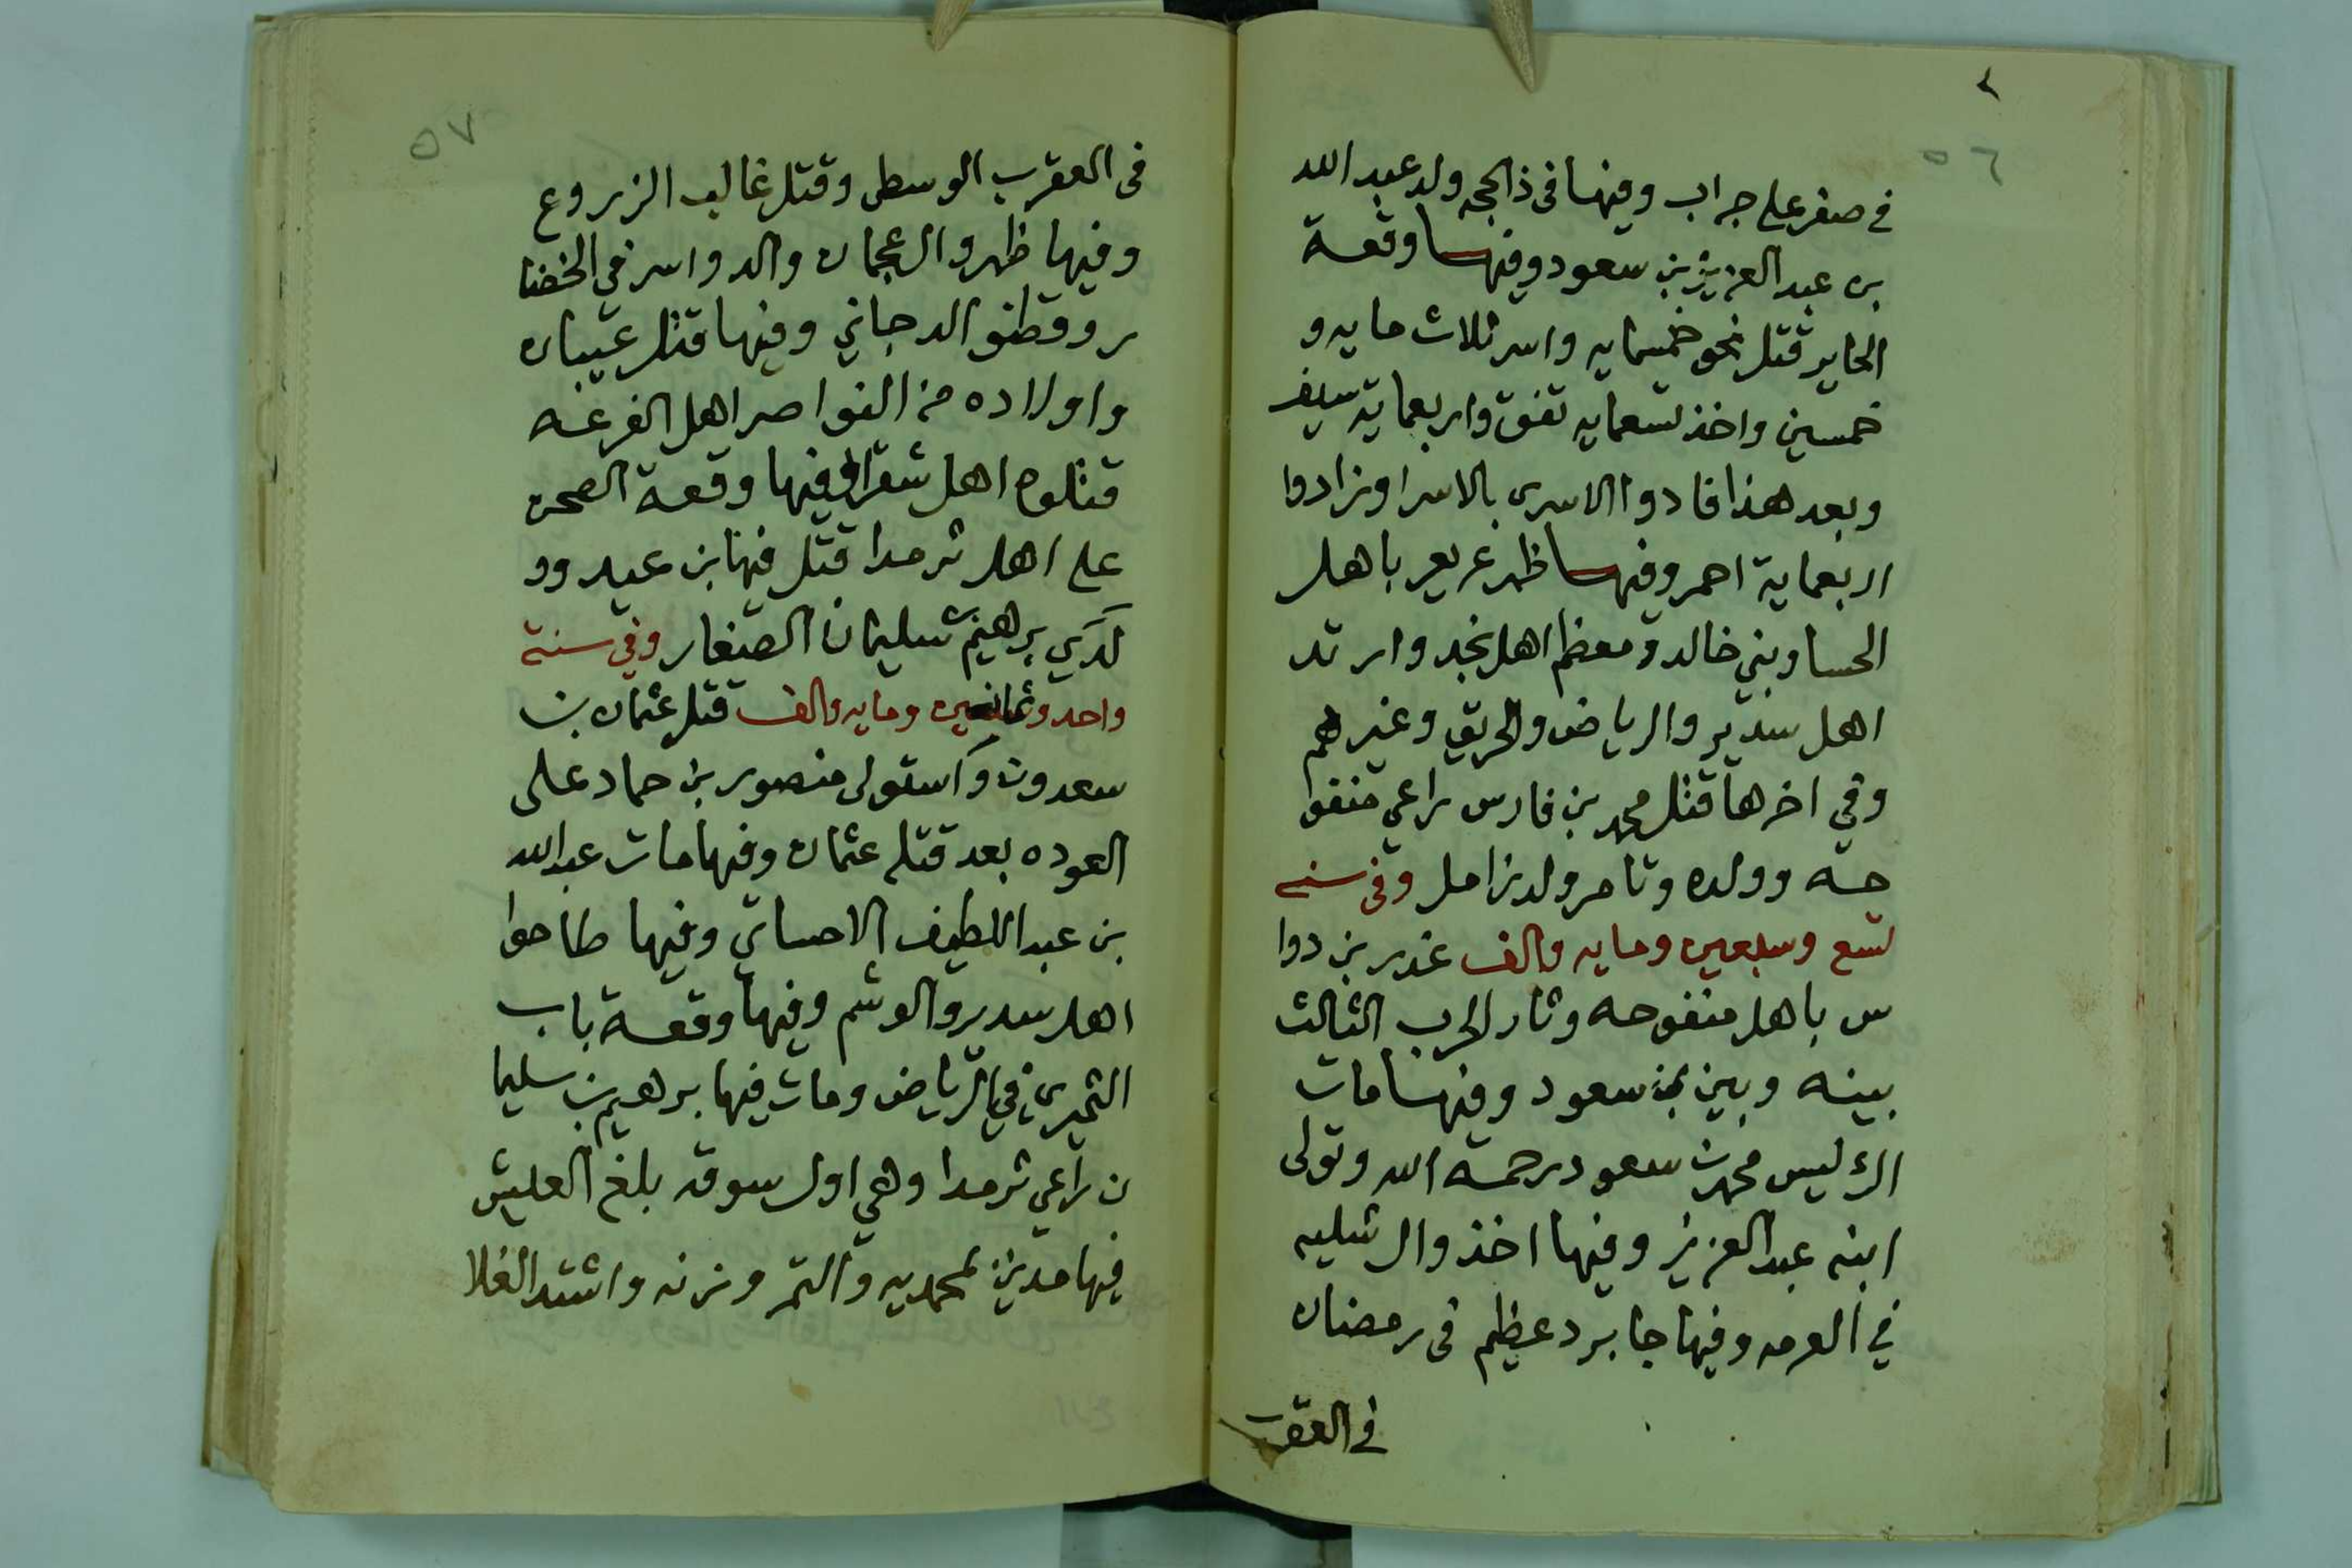 ٥٦
في صفر على جراب وفيها في ذالحجه ولد عبد الله
بن عبد العزيز بن سعود وفيها وقعة
الحاير قتل نحو خمسمايه واسر ثلاث مايه و
خمسين واخذ تسعمايه تفق واربعماية سيف
وبعد هذا فادوا الاسرى بالاسرا وزادوا
اربعماية احمر وفيها ظهر عريعر باهل
الحسا وبني خالد ومعظم اهل نجد وارتد
اهل سدير والرياض والحريق وغيرهم
وفي اخرها قتل محمد بن فارس راعي منفوا
حه وولده وتامر ولد زامل وفي سنه
تسع وسبعين ومايه والف غدر بن دوا
س باهل منفوحه وثار الحرب الثالث
بينه وبين بن سعود وفيها مات
الرئيس محمد بن سعود رحمة الله وتولى
ابنه عبد العزيز وفيها اخذوا ال شليه
في العرمه وفيها جا برد عظيم في رمضان
في العقرب
٥٧
في العقرب الوسطى وقتل غالب الزروع
وفيها ظهروا العجمان والدواسر في الخضا
ر وقطنو الدجاني وفيها قتل عيبان
واولاده من النواصر اهل الفرعه
قتلوه اهل شقرا وفيها وقعة الصحن
على اهل ثرمدا قتل فيها بن عيد وو
لدي برهيم سليمان الصغار وفي سنة
واحد وثمانين ومايه والف قتل عثمان بن
سعدون واستولى منصور بن حماد على
العوده بعد قتله عثمان وفيها مات عبد الله
بن عبد اللطيف الاحسائي وفيها طاحوا
اهل سدير والوشم وفيها وقعة باب
الثميري في الرياض ومات فيها برهيم بن سليما
ن راعي ثرمدا وهي اول سوقه بلغ العيش
فيها مدين لمحمديه والتمر وزنه واشتد الغلا